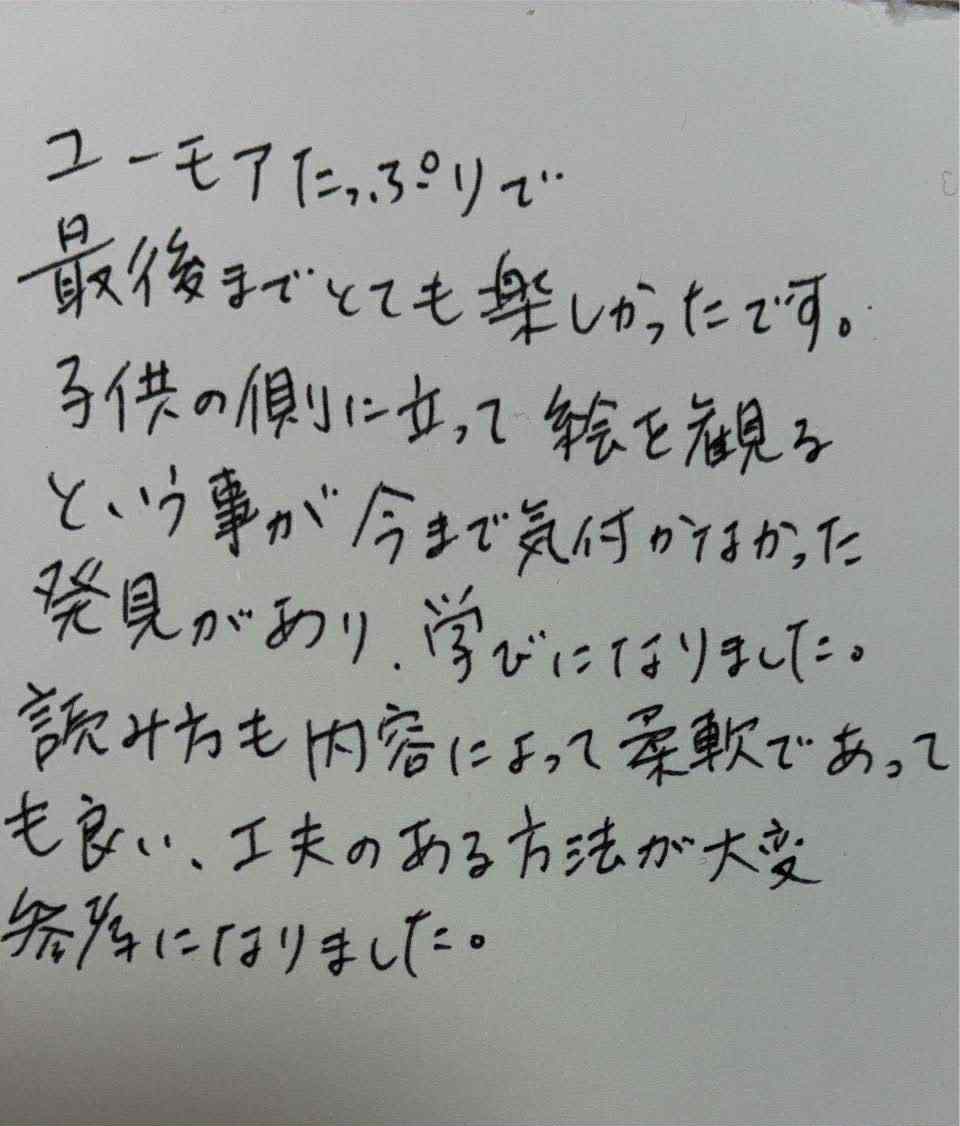 ユーモアたっぷりで
最後までとても楽しかったです。
子供の側に立って絵を観る
という事が今まで気付かなかった
発見があり、学びになりました。
読み方も内容によって柔軟であって
も良い、工夫のある方法が大変
参考になりました。